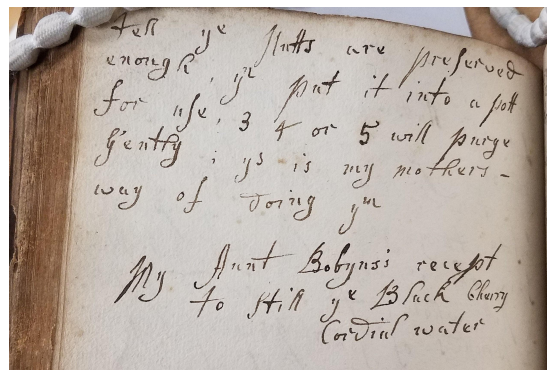 tell ye Nutts are preserved
enough, yn put it into a pott
for use, 3 4 or 5 will purge
Gently; ys is my mothers -
way of doing ym
My Aunt Bobyns's recept
to still ye Black Cherry
Cordial water